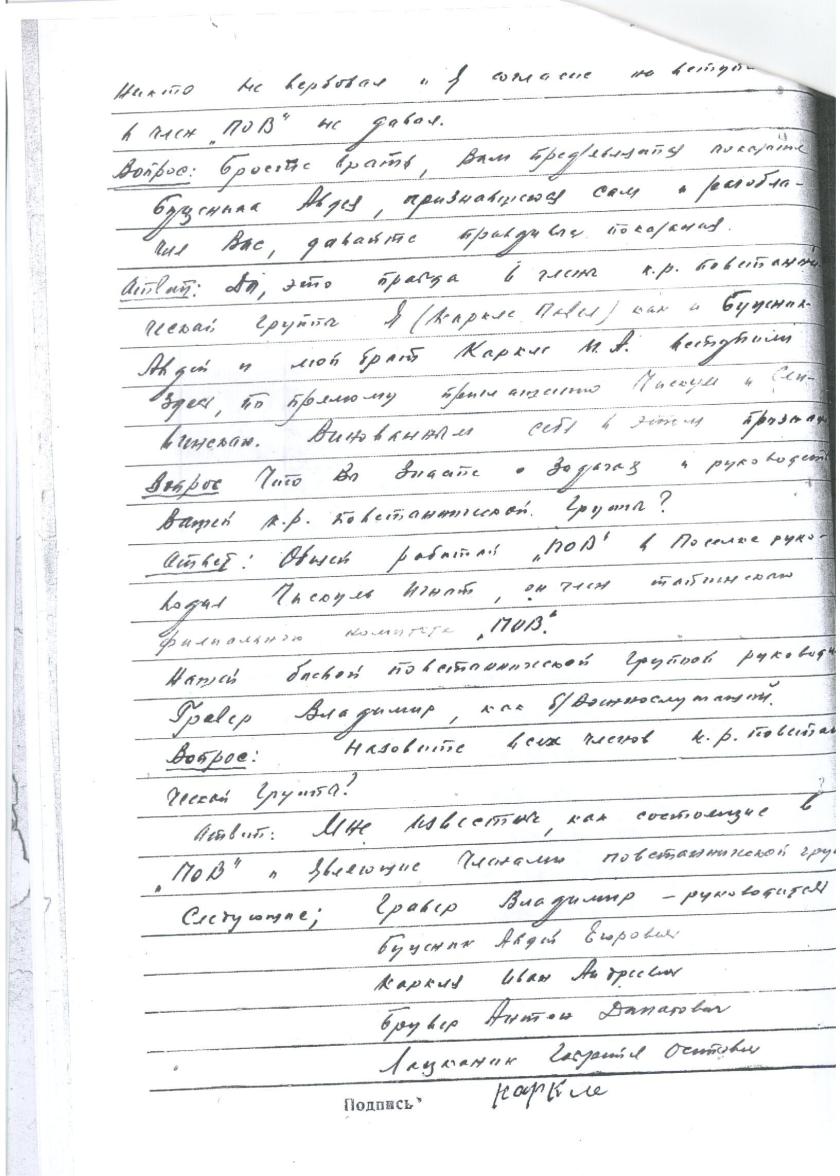 Никто не вербовал и я согласие на вступ
в член „ПОВ“ не давал.
Вопрос: Бросте врать, Вам предъявлятся показате
Буценика Авдея, признавшегося сам и разобла-
чил Вас, давайте правдивы показания.
Ответ: Да, это правда в члены к.р. повстанни
ческой группы Я (Каркле Павел) как и Буценик-
Авдей и мой брат Каркле И.А. вступили
здесь, по прямому приглашению Чискуль и
Виновантым себя в этом признаю
Вопрос Что Вы знаете о задачах и руководст
Вашей к.р. повстаннической группы?
Ответ: Общей работай „ПОВ“ в Поселке руко-
водил Чискуль Игнат, он член
филиального комитета „ПОВ“.
Нашей боевой повстаннической группой руководи
Гравер Владимир, как б/военнослужащий.
Вопрос: Назовите всех членов к.р. повстан
ческой группы?
Ответ: Мне известны, как состоящие в
„ПОВ“ и являющие членами повстаннической гру
Следующие; Гравер Владимир – руководителя
Буценик Авдей Егорович
Каркля Иван Андреевич
Брувер Антон Донатович
Лацканик Осипович
Подпись
Каркле